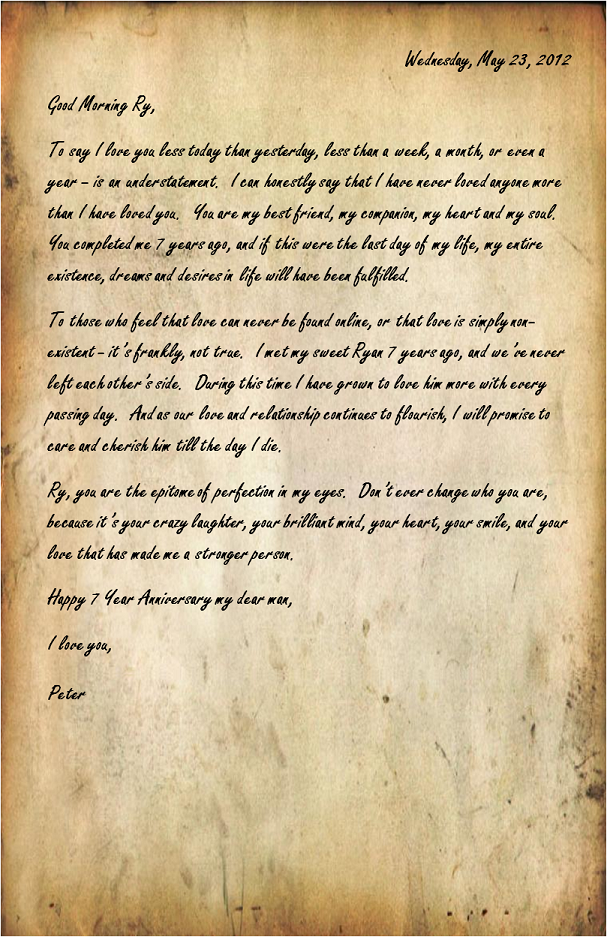 Wednesday, May 23, 2012
Good Morning Ry,
To say I love you less today than yesterday, less than a week, a month, or even a
year – is an understatement. I can honestly say that I have never loved anyone more
than I have loved you. You are my best friend, my companion, my heart and my soul.
You completed me 7 years ago, and if this were the last day of my life, my entire
existence, dreams and desires in life will have been fulfilled.
To those who feel that love can never be found online, or that love is simply non-
existent – it's frankly, not true. I met my sweet Ryan 7 years ago, and we've never
left each other's side. During this time I have grown to love him more with every
passing day. And as our love and relationship continues to flourish, I will promise to
care and cherish him till the day I die.
Ry, you are the epitome of perfection in my eyes. Don't ever change who you are,
because it's your crazy laughter, your brilliant mind, your heart, your smile, and your
love that has made me a stronger person.
Happy 7 Year Anniversary my dear man,
I love you,
Peter